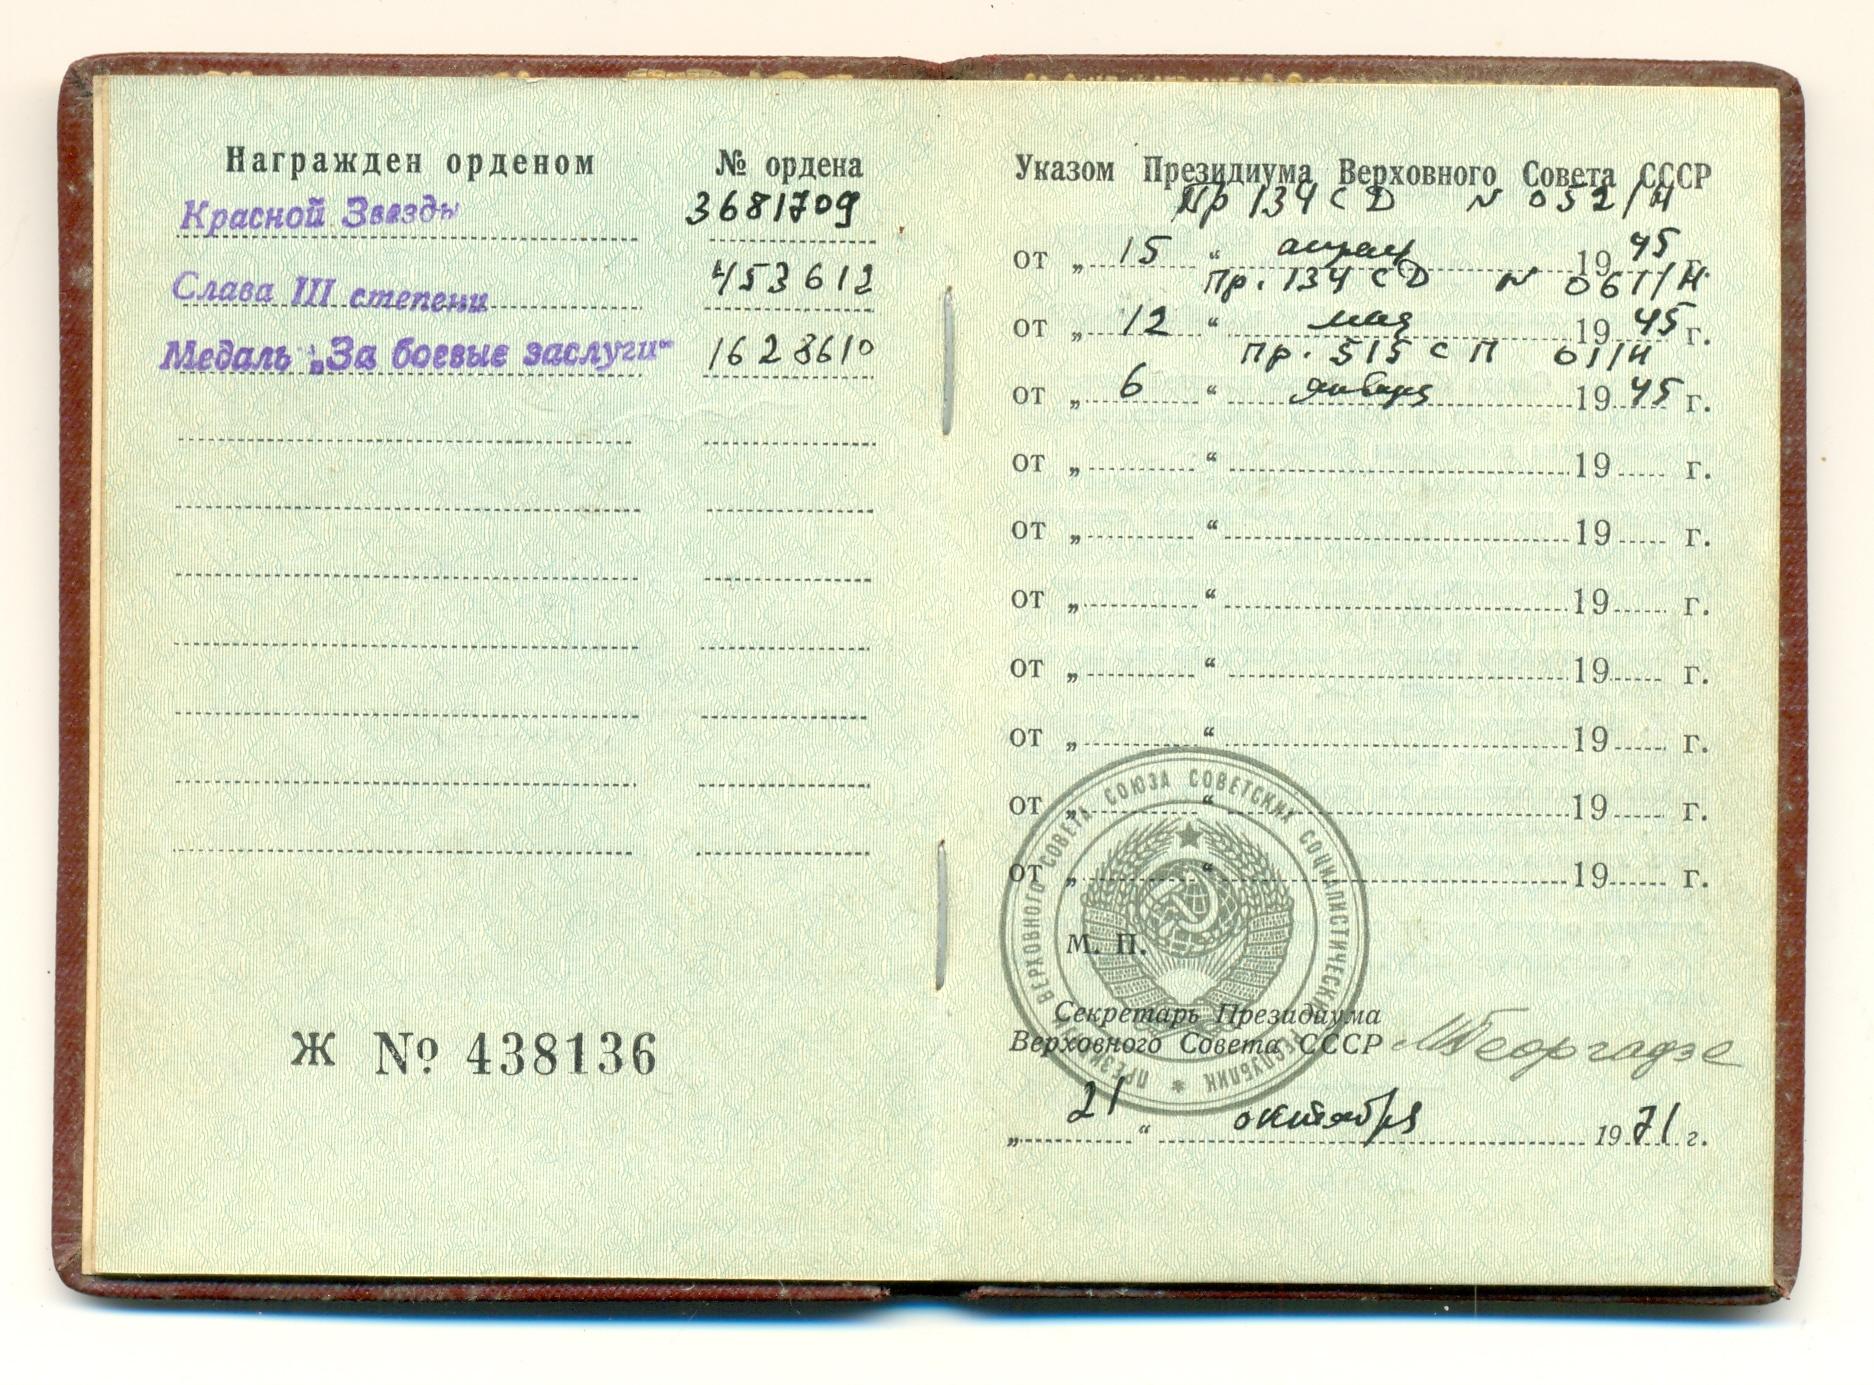 Награжден орденом № ордена
Красной Звезды 3681709
Слава III степени 453612
Медаль „За боевые заслуги“ 1628610
Ж № 438136
Указом Президиума Верховного Совета СССР
Пр 134 СД N 052/Н
от „ 15 “ апреля 1945 г.
Пр. 134 СД N 061/Н
от „ 12 “ мая 1945 г.
Пр. 515 СП 01/Н
от „ 6 “ января 1945 г.
от „ “ 19 г.
от „ “ 19 г.
от „ “ 19 г.
от „ “ 19 г.
от „ “ 19 г.
от „ “ 19 г.
от „ “ 19 г.
ПРЕЗИДИУМ ВЕРХОВНОГО СОВЕТА СОЮЗА СОВЕТСКИХ СОЦИАЛИСТИЧЕСКИХ РЕСПУБЛИК
М. П.
Секретарь Президиума
Верховного Совета СССР МГеоргадзе
„ 21 “ октября 1971 г.